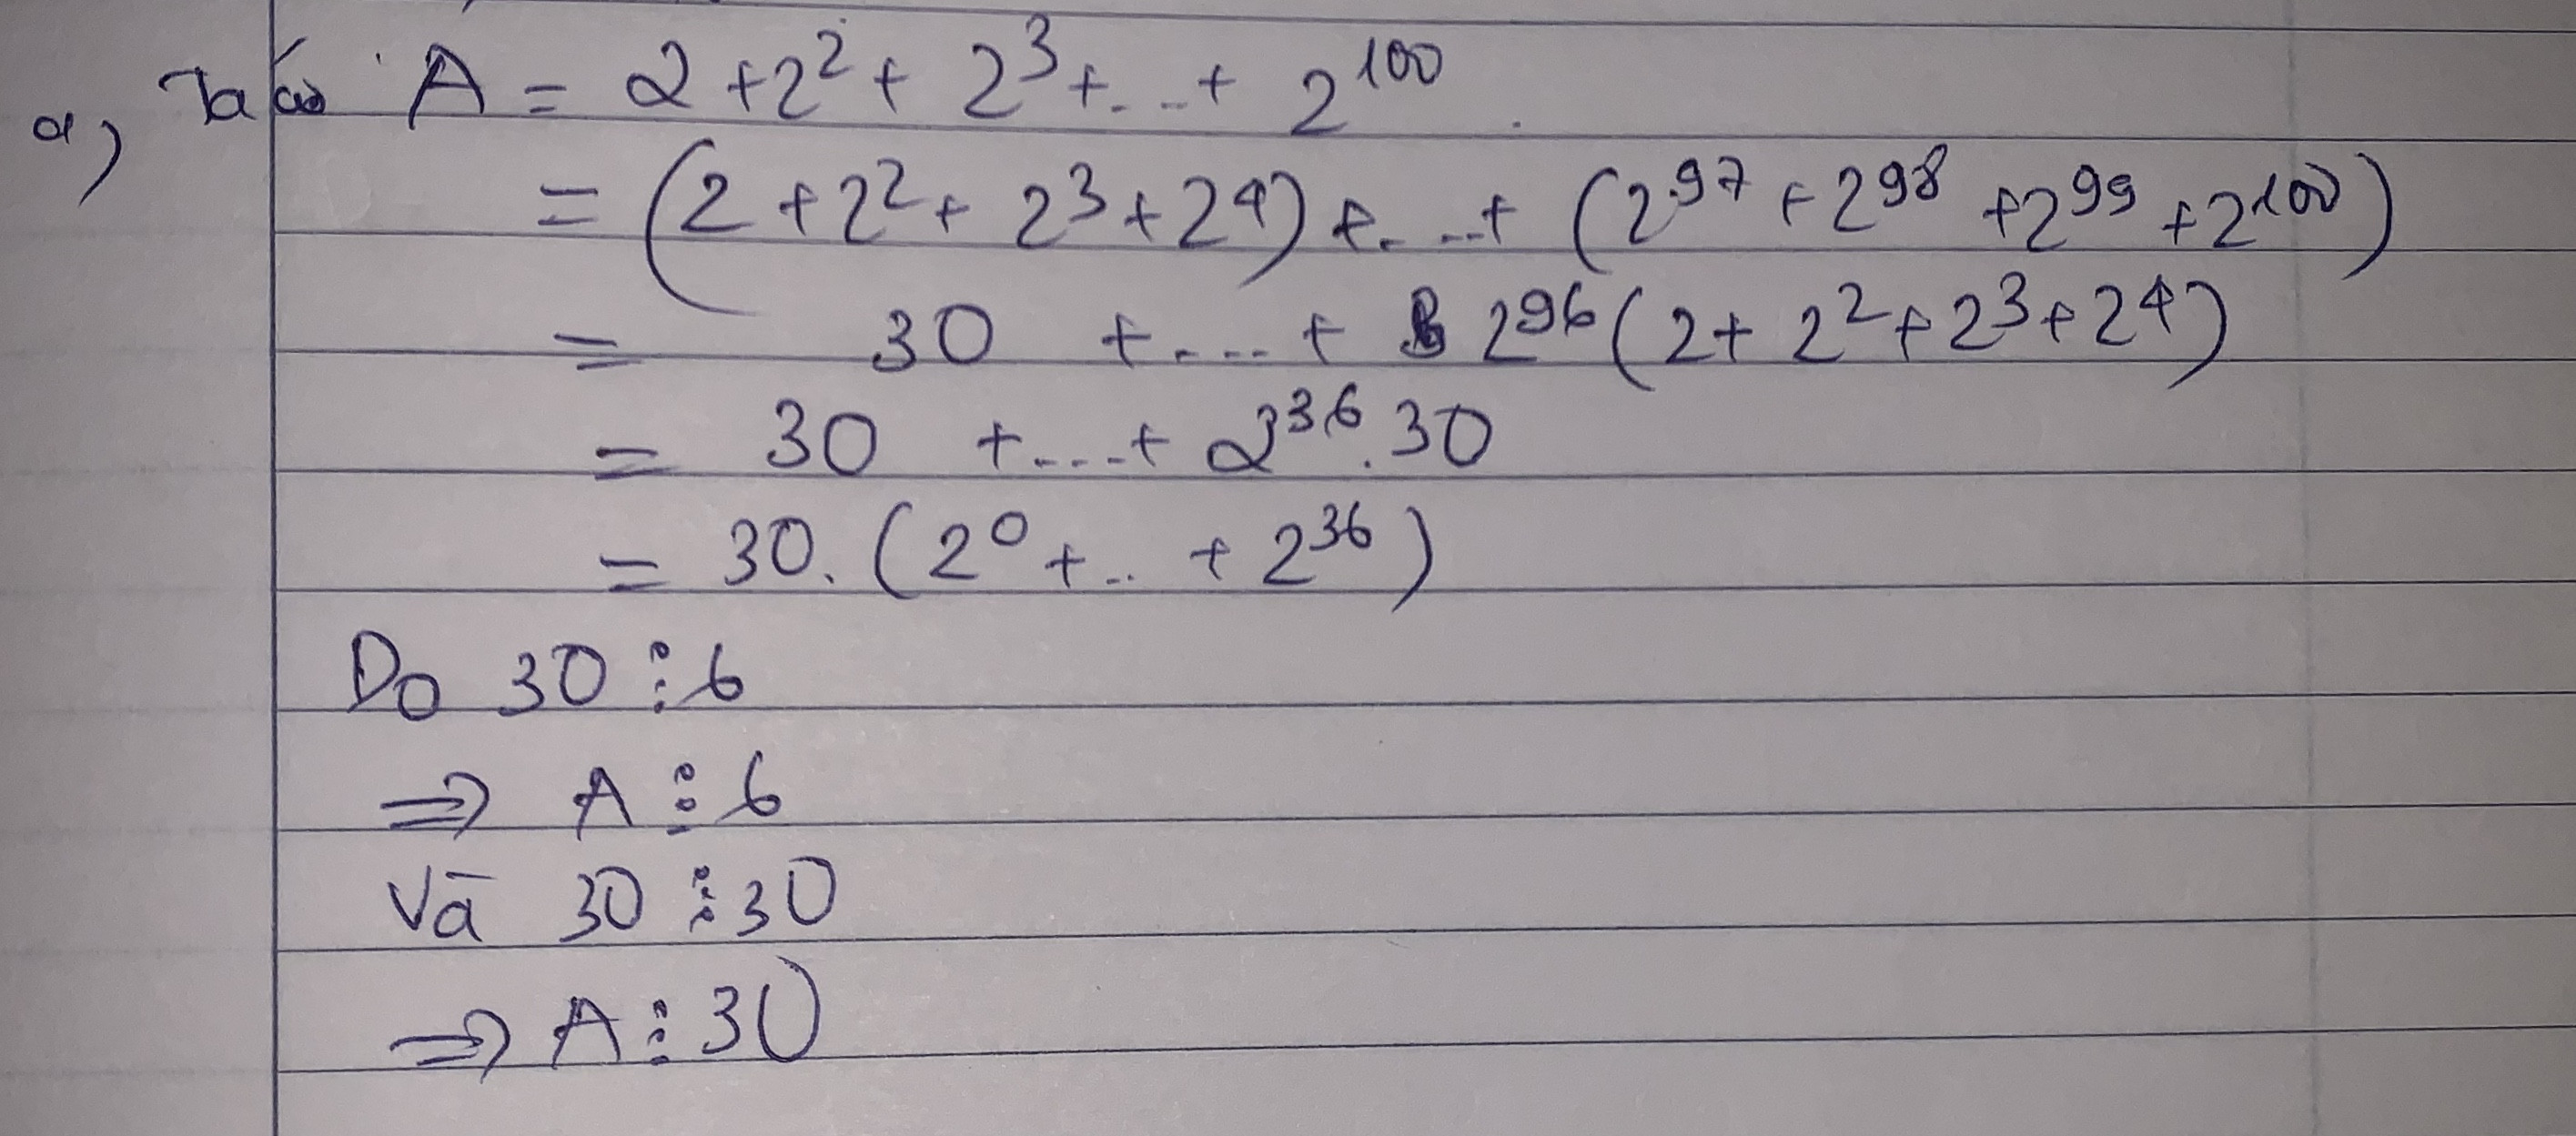 a, Ta có A = 2 + 2² + 2³ + ... + 2¹⁰⁰.
= (2 + 2² + 2³ + 2⁴) + ... + (2⁹⁷ + 2⁹⁸ + 2⁹⁹ + 2¹⁰⁰)
= 30 + .... + 2⁹⁶ (2 + 2² + 2³ + 2⁴)
= 30 + .... + 2³⁶ . 30
= 30. (2⁰ + .. + 2³⁶)
Do 30 ⋮ 6
⇒ A ⋮ 6
Và 30 ⋮ 30
⇒ A ⋮ 30